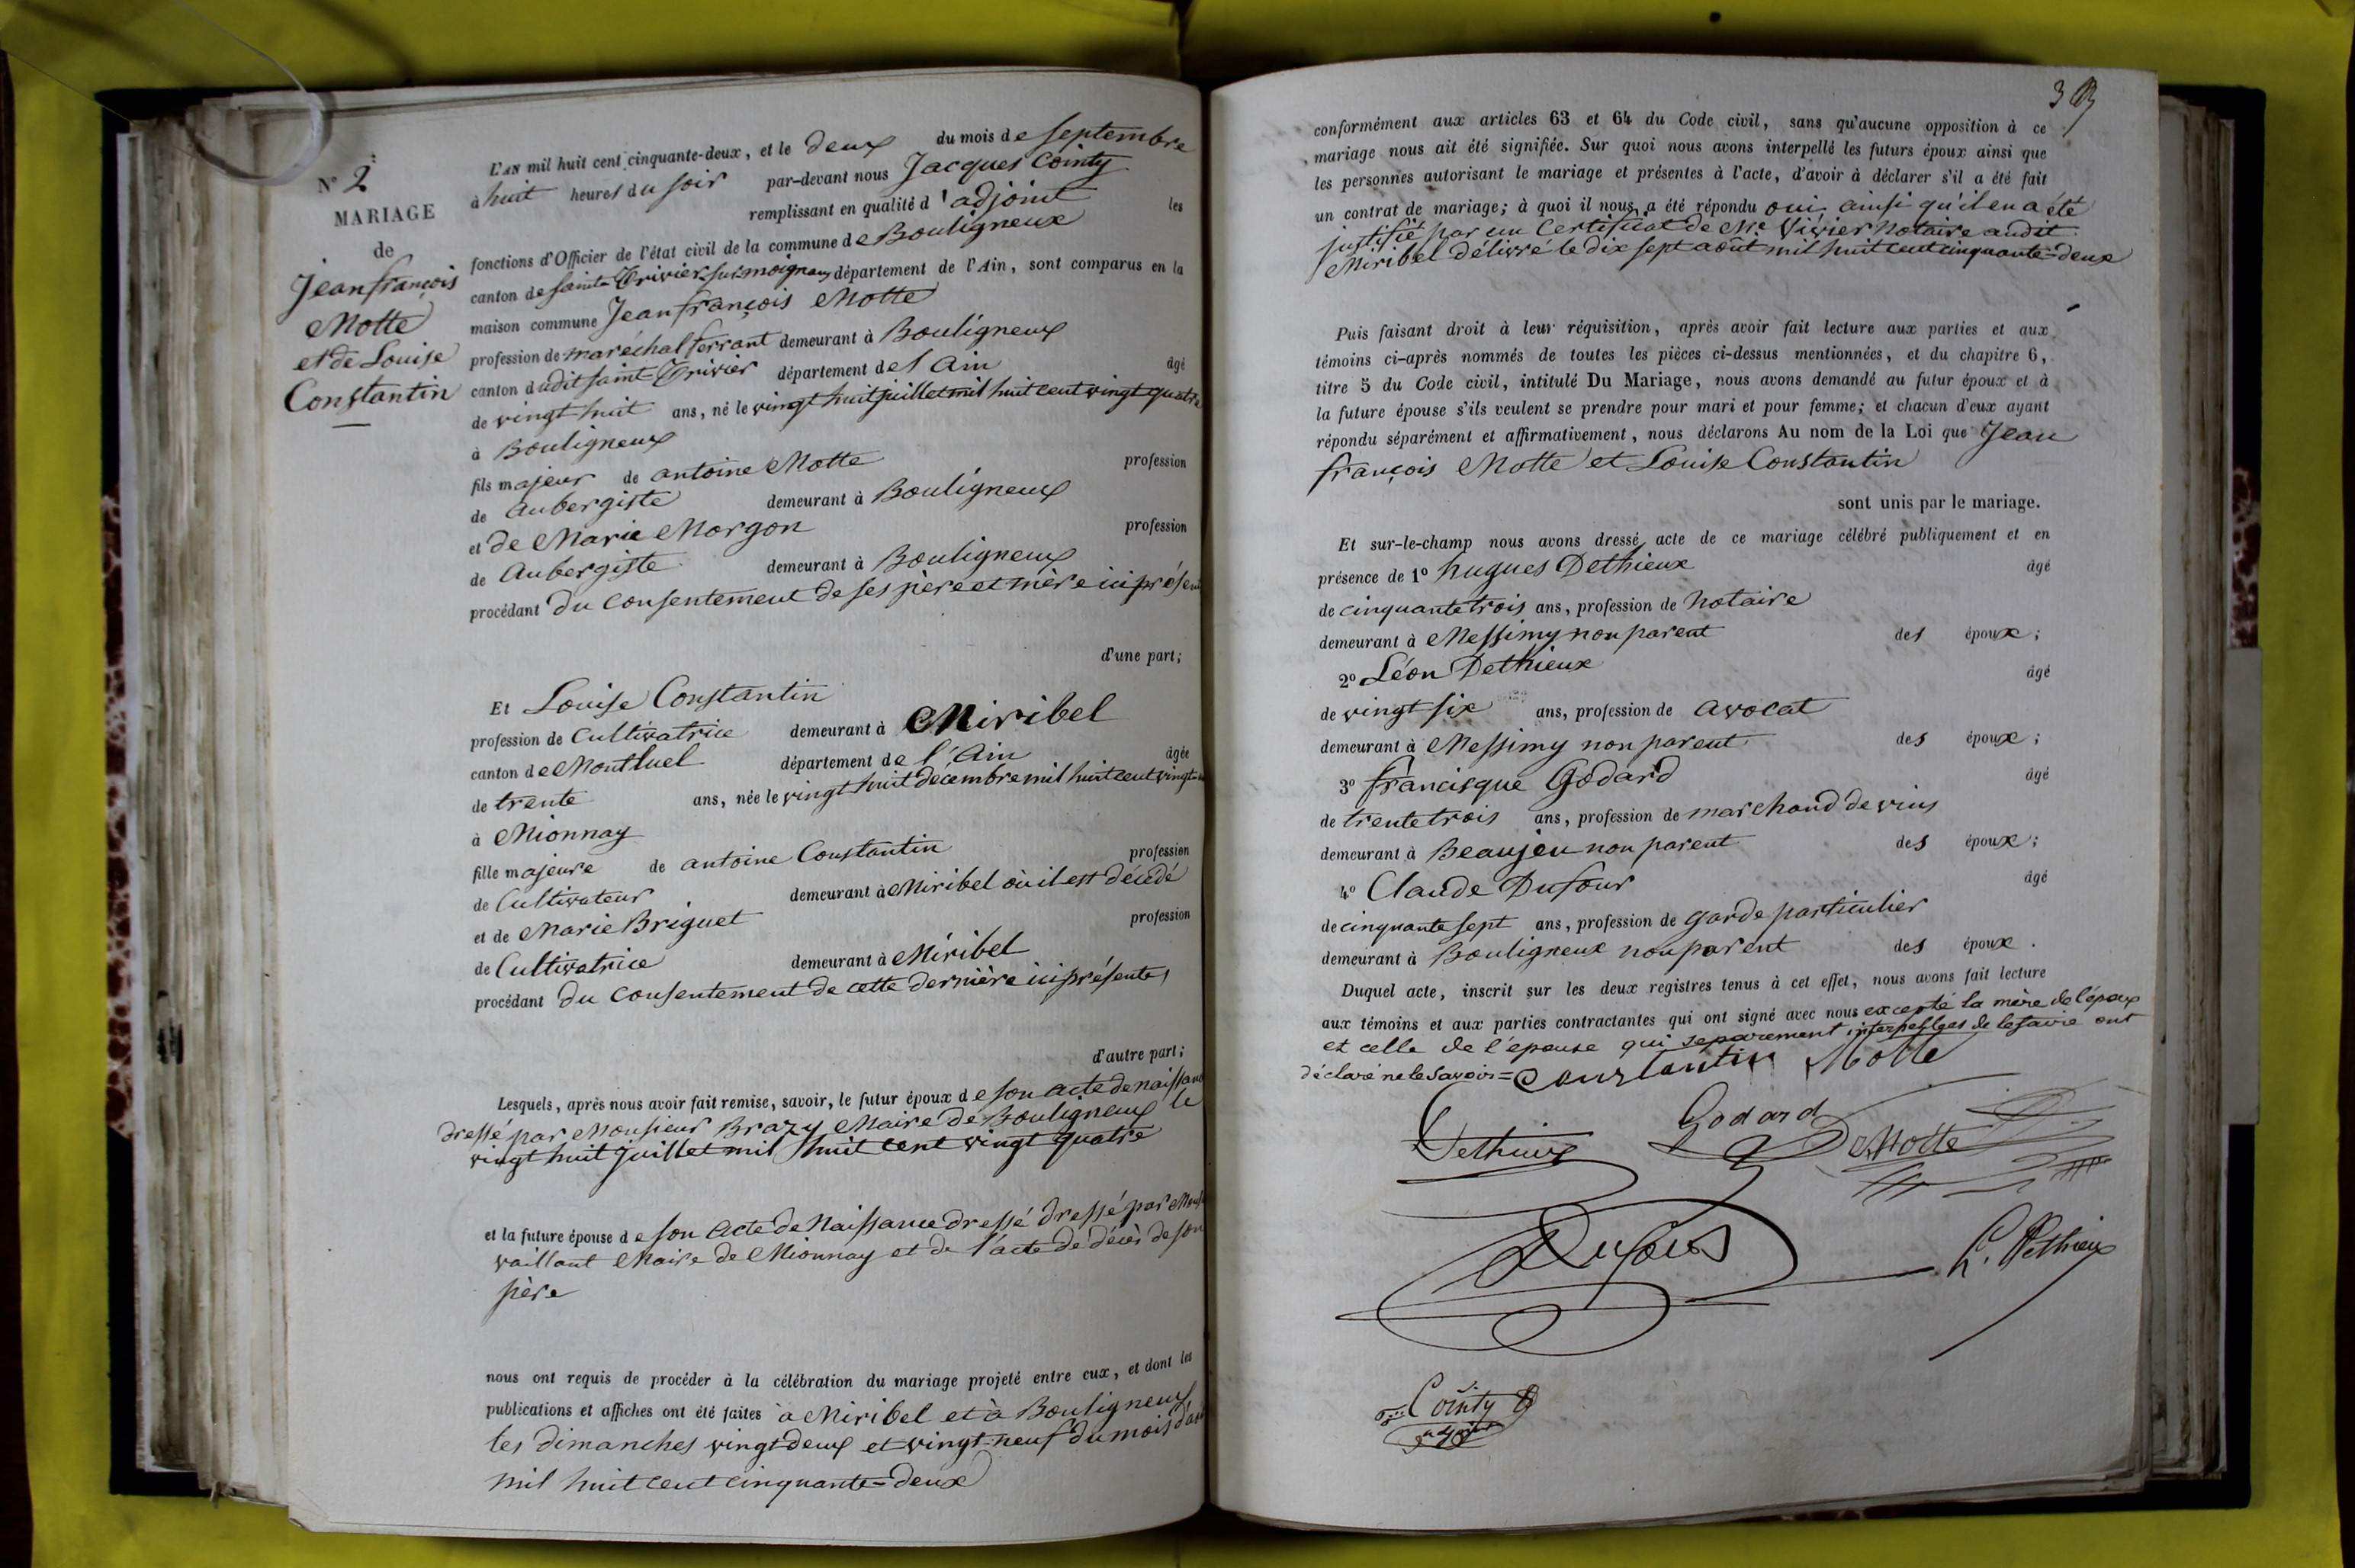 N° 2
MARIAGE
de
Jean françois
Motte
et de Louise
Constantin
L'AN mil huit cent cinquante-deux, et le deux du mois de septembre
à huit heures du soir par-devant nous Jacques Cointy
remplissant en qualité d'adjoint les
fonctions d'Officier de l'état civil de la commune de Bouligneux
canton de saint-Trivier sur moignans département de l'Ain, sont comparus en la
maison commune Jean françois Motte
profession de maréchal ferrant demeurant à Bouligneux
canton dudit saint-Trivier département de l'Ain âgé
de vingt huit ans, né le vingt huit juillet mil huit cent vingt quatre
à Bouligneux
fils majeur de antoine Motte profession
de Aubergiste demeurant à Bouligneux
et de Marie Morgon profession
de Aubergiste demeurant à Bouligneux
procédant du consentement de ses père et mère ici présents
d'une part;
Et Louise Constantin
profession de Cultivatrice demeurant à Miribel
canton de Montluel département de l'Ain âgée
de trente ans, née le vingt huit décembre mil huit cent vingt-
à Mionnay
fille majeure de antoine Constantin profession
de Cultivateur demeurant à Miribel où il est décédé
et de Marie Briguet profession
de Cultivatrice demeurant à Miribel
procédant du consentement de cette dernière ici présente,
d'autre part;
Lesquels, après nous avoir fait remise, savoir, le futur époux de son acte de naissance
dressé par Monsieur Brazy Maire de Bouligneux le
vingt huit juillet mil huit cent vingt quatre
et la future épouse de son acte de Naissance dressé dressé par
vaillant Maire de Mionnay et de l'acte de décès de son
père
nous ont requis de procéder à la célébration du mariage projeté entre eux, et dont les
publications et affiches ont été faites à Miribel et à Bouligneux
les dimanches vingt-deux et vingt-neuf du mois d'août
mil huit cent cinquante=deux
conformément aux articles 63 et 64 du Code civil, sans qu'aucune opposition à ce
mariage nous ait été signifiée. Sur quoi nous avons interpellé les futurs époux ainsi que
les personnes autorisant le mariage et présentes à l'acte, d'avoir à déclarer s'il a été fait
un contrat de mariage; à quoi il nous a été répondu oui ainsi qu'il en a été
justifié par un Certificat de Me Vivier Notaire audit
Miribel délivré le dix sept août mil huit cent cinquante=deux
Puis faisant droit à leur réquisition, après avoir fait lecture aux parties et aux
témoins ci-après nommés de toutes les pièces ci-dessus mentionnées, et du chapitre 6,
titre 5 du Code civil, intitulé Du Mariage, nous avons demandé au futur époux et à
la future épouse s'ils veulent se prendre pour mari et pour femme; et chacun d'eux ayant
répondu séparément et affirmativement, nous déclarons Au nom de la Loi que Jean
françois Motte et Louise Constantin
sont unis par le mariage.
Et sur-le-champ nous avons dressé acte de ce mariage célébré publiquement et en
présence de 1° hugues Dethieux âgé
de cinquante trois ans, profession de Notaire
demeurant à Messimy non parent des époux;
2° Léon Dethieux âgé
de vingt six ans, profession de avocat
demeurant à Messimy non parent des époux;
3° francisque Godard âgé
de trente trois ans, profession de marchand de vins
demeurant à Beaujeu non parent des époux;
4° Claude Dufour âgé
de cinquante sept ans, profession de garde particulier
demeurant à Bouligneux non parent des époux.
Duquel acte, inscrit sur les deux registres tenus à cet effet, nous avons fait lecture
aux témoins et aux parties contractantes qui ont signé avec nous excepté la mère de l'époux
et celle de l'épouse qui séparement interpellées de le faire ont
déclaré ne le savoir = Constantin Motte
Godard
Dethieux
Motte
Dufour
L. Dethieux
Cointy
adjoint